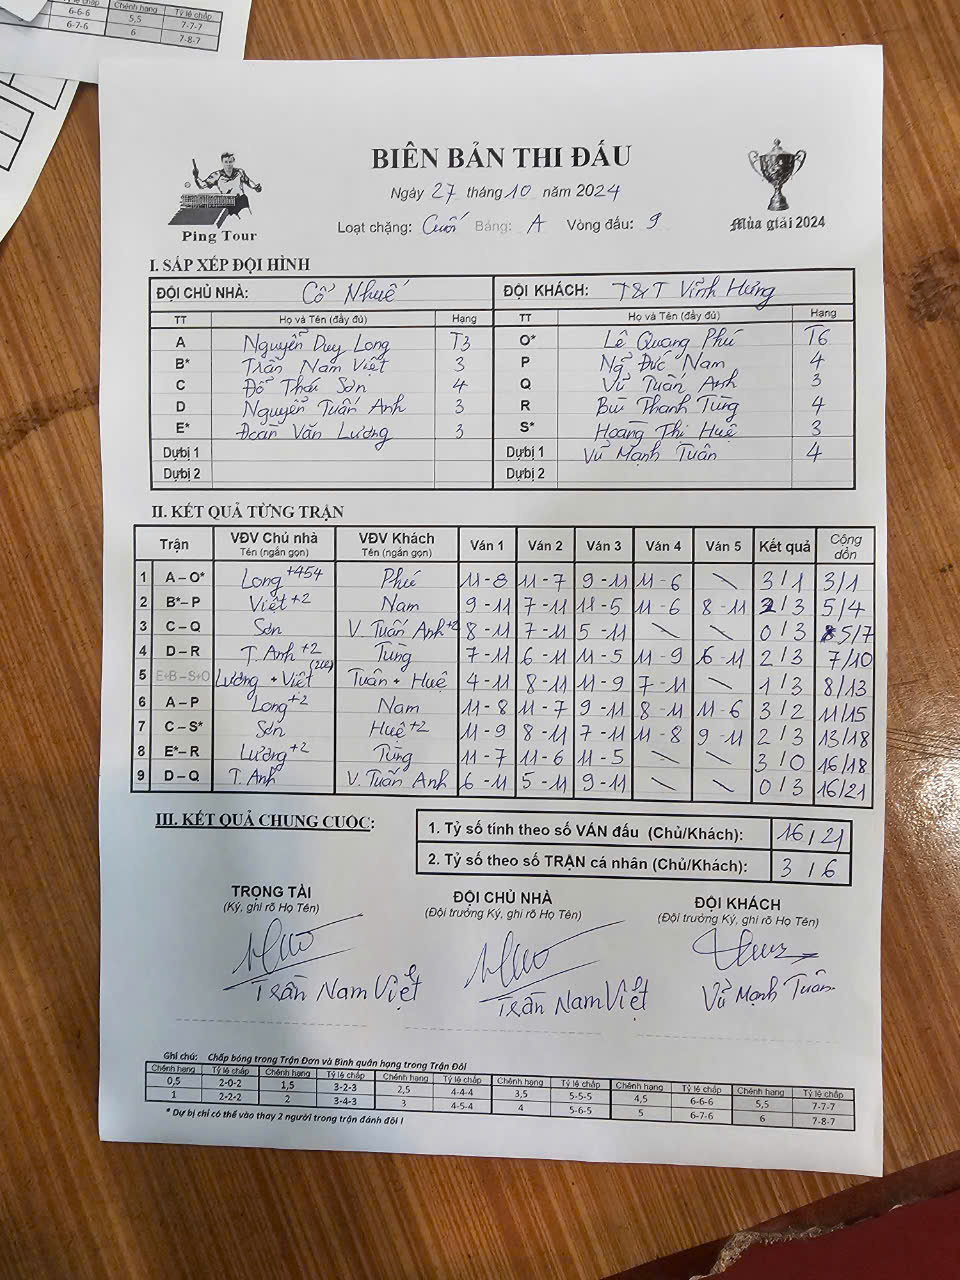 Chênh hạng Tỷ lệ chấp
6-6-6 5,5 7-7-7
6-7-6 6 7-8-7
BIÊN BẢN THI ĐẤU
Ngày 27 tháng 10 năm 2024
Loạt chặng: Cuối Bảng: A Vòng đấu: 9
Ping Tour
Mùa giải 2024
I. SẮP XẾP ĐỘI HÌNH
ĐỘI CHỦ NHÀ: Cổ Nhuế ĐỘI KHÁCH: T&T Vĩnh Hưng
TT Họ và Tên (đầy đủ) Hạng TT Họ và Tên (đầy đủ) Hạng
A Nguyễn Duy Long T3 O* Lê Quang Phú T6
B* Trần Nam Việt 3 P Ng Đức Nam 4
C Đỗ Thái Sơn 4 Q Vũ Tuấn Anh 3
D Nguyễn Tuấn Anh 3 R Bùi Thanh Tùng 4
E* Đoàn Văn Lương 3 S* Hoàng Thị Huệ 3
Dự bị 1 Dự bị 1 Vũ Mạnh Tuân 4
Dự bị 2 Dự bị 2
II. KẾT QUẢ TỪNG TRẬN
Trận VĐV Chủ nhà Tên (ngắn gọn) VĐV Khách Tên (ngắn gọn) Ván 1 Ván 2 Ván 3 Ván 4 Ván 5 Kết quả Cộng dồn
1 A – O* Long +454 Phú 11 - 8 11 - 7 9 - 11 11 - 6 \ 3 / 1 3/1
2 B* – P Việt +2 Nam 9 - 11 7 - 11 11 - 5 11 - 6 8 - 11 2 / 3 5/4
3 C – Q Sơn V. Tuấn Anh +2 8 - 11 7 - 11 5 - 11 \ \ 0 / 3 5/7
4 D – R T. Anh +2 Tùng 7 - 11 6 - 11 11 - 5 11 - 9 6 - 11 2 / 3 7/10
5 E+B – S+O Lương + Việt (202) Tuân + Huệ 4 - 11 8 - 11 11 - 9 7 - 11 \ 1 / 3 8/13
6 A – P Long +2 Nam 11 - 8 11 - 7 9 - 11 8 - 11 11 - 6 3 / 2 11/15
7 C – S* Sơn Huệ +2 11 - 9 8 - 11 7 - 11 11 - 8 9 - 11 2 / 3 13/18
8 E* – R Lương +2 Tùng 11 - 7 11 - 6 11 - 5 \ \ 3 / 0 16/18
9 D – Q T. Anh V. Tuấn Anh 6 - 11 5 - 11 9 - 11 \ \ 0 / 3 16/21
III. KẾT QUẢ CHUNG CUỘC:
1. Tỷ số tính theo số VÁN đấu (Chủ/Khách): 16 / 21
2. Tỷ số theo số TRẬN cá nhân (Chủ/Khách): 3 / 6
TRỌNG TÀI ĐỘI CHỦ NHÀ ĐỘI KHÁCH
(Ký, ghi rõ Họ Tên) (Đội trưởng Ký, ghi rõ Họ Tên) (Đội trưởng Ký, ghi rõ Họ Tên)
Trần Nam Việt Trần Nam Việt Vũ Mạnh Tuân
Ghi chú: Chấp bóng trong Trận Đơn và Bình quân hạng trong Trận Đôi
Chênh hạng Tỷ lệ chấp Chênh hạng Tỷ lệ chấp Chênh hạng Tỷ lệ chấp Chênh hạng Tỷ lệ chấp Chênh hạng Tỷ lệ chấp Chênh hạng Tỷ lệ chấp
0,5 2-0-2 1,5 3-2-3 2,5 4-4-4 3,5 5-5-5 4,5 6-6-6 5,5 7-7-7
1 2-2-2 2 3-4-3 3 4-5-4 4 5-6-5 5 6-7-6 6 7-8-7
* Dự bị chỉ có thể vào thay 2 người trong trận đánh đôi !